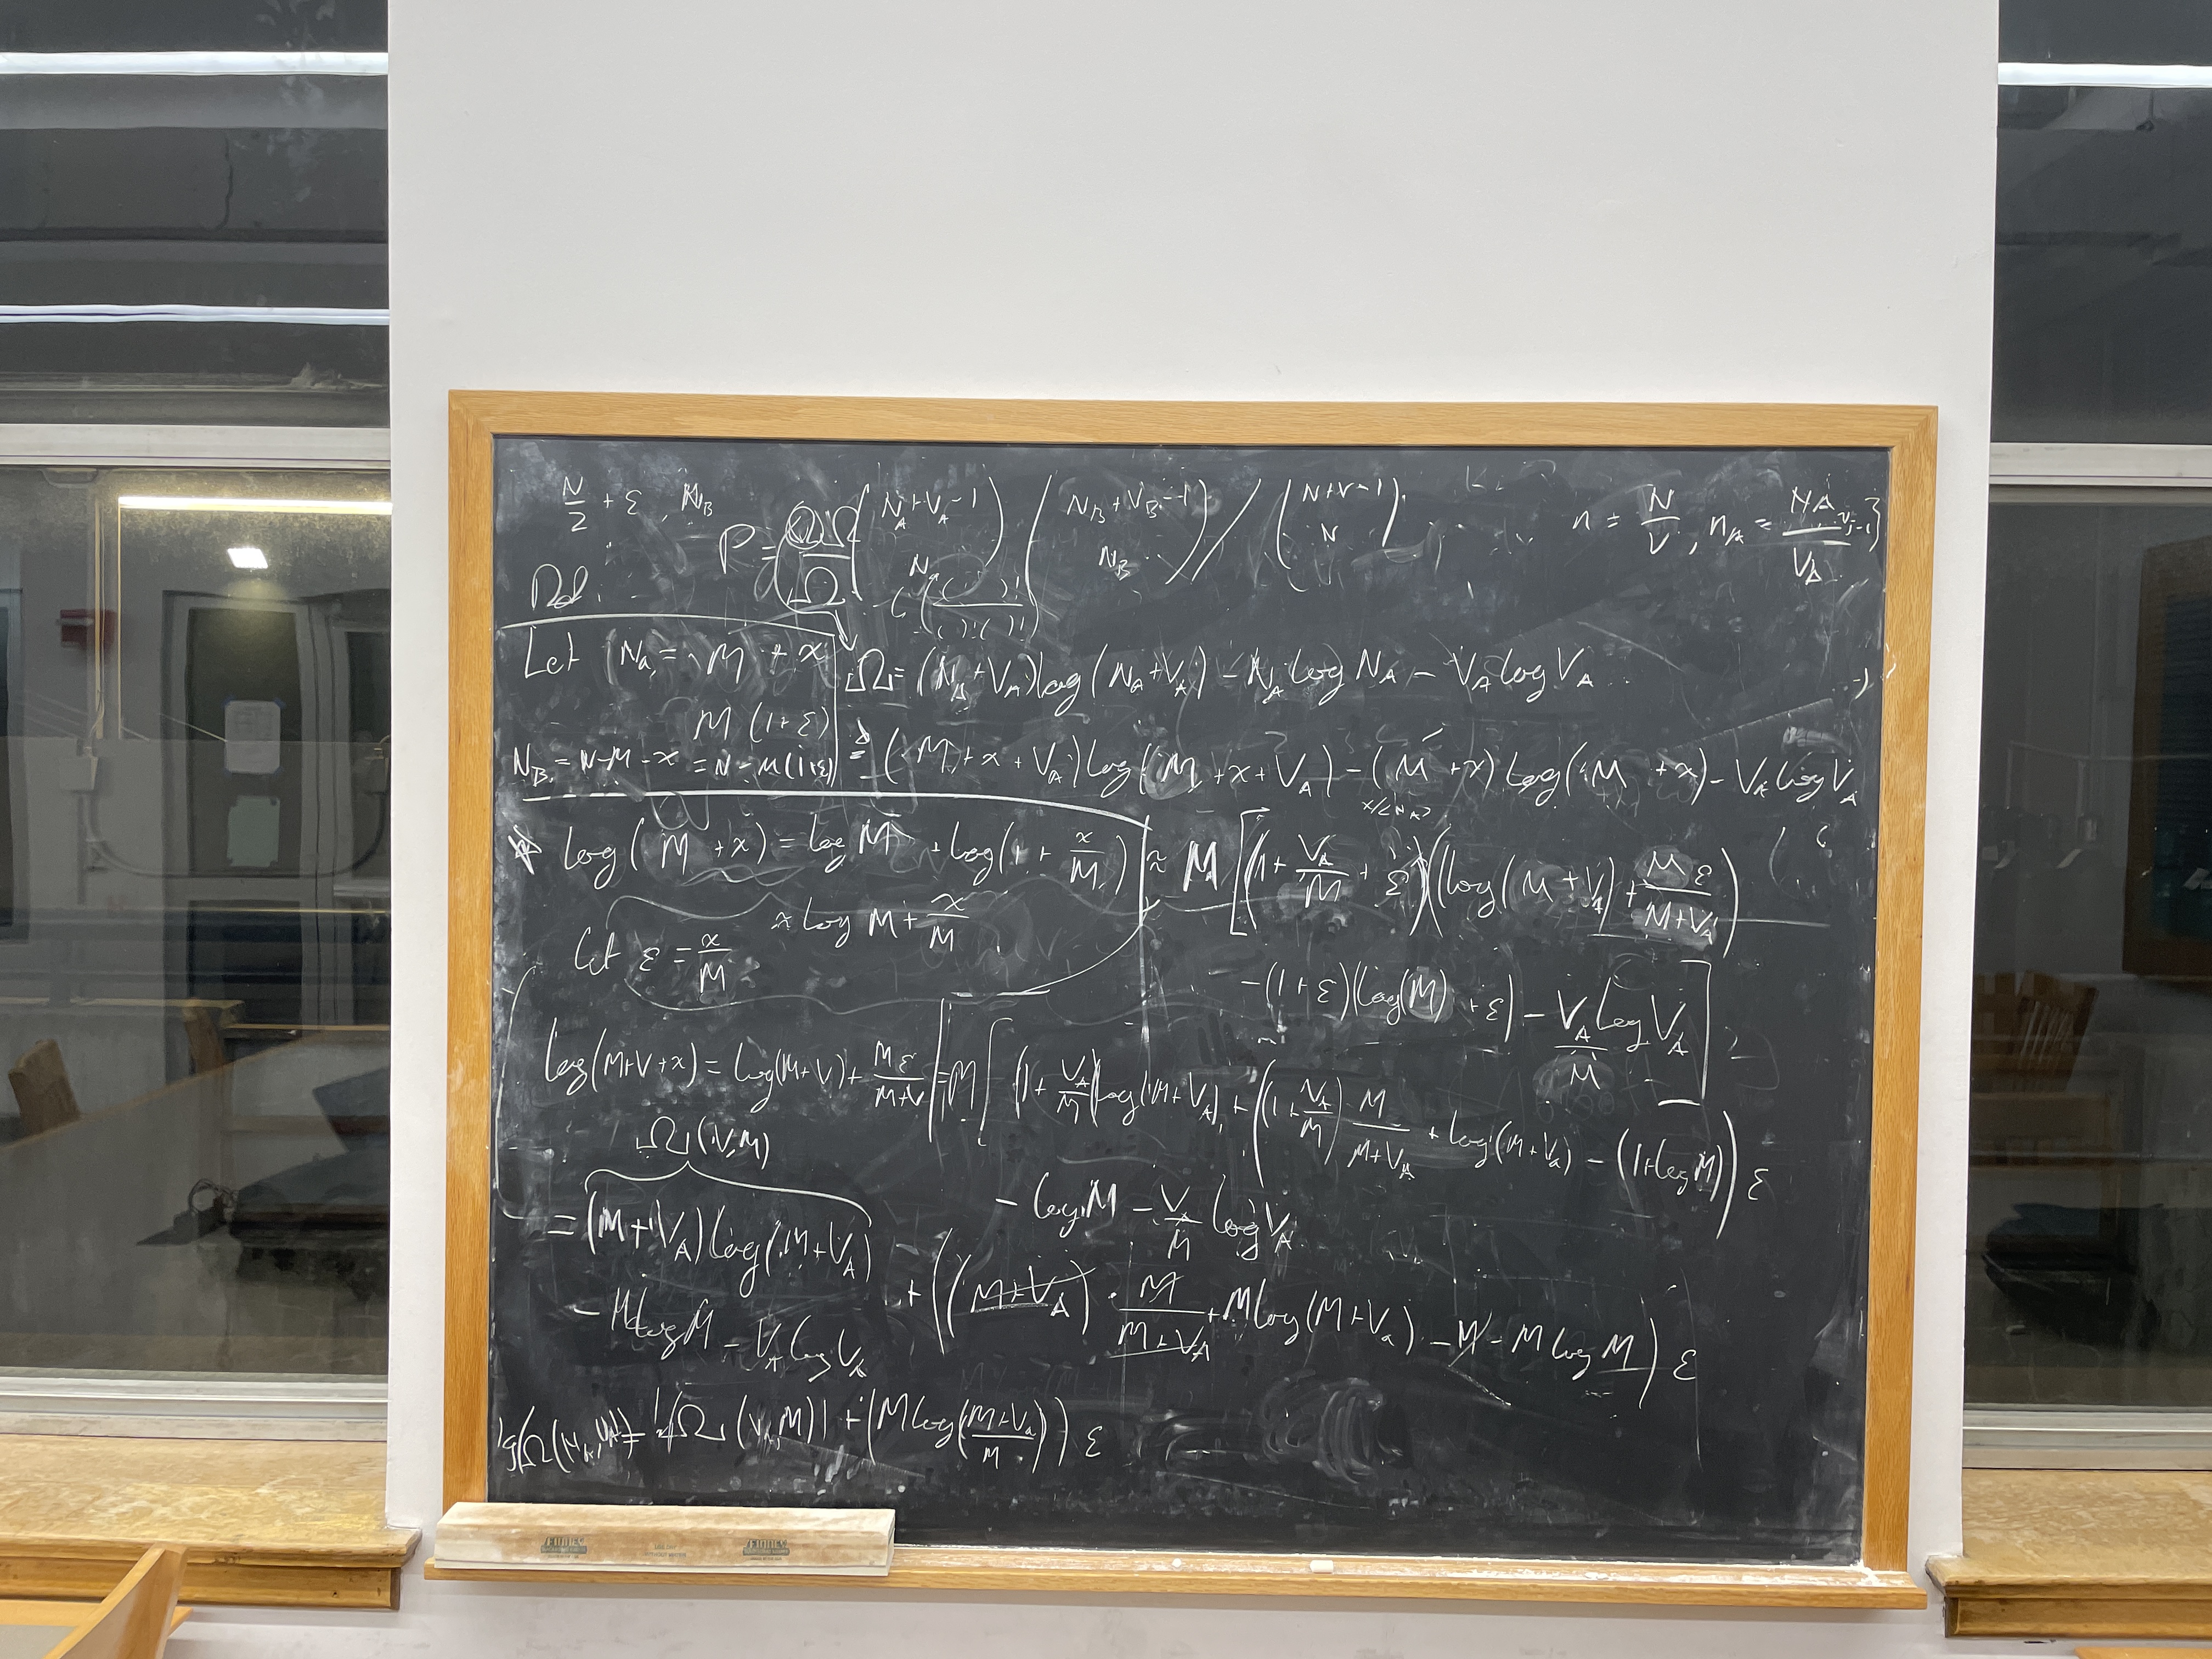 N/2 + ε , N_B
P = Ω Ω / Ω ( N_A + V_A - 1 / N_A ) ( N_B + V_B - 1 / N_B ) / ( N + V - 1 / N )
n = N/V , n_A = N_A / V_A
( ( )! / ( )! ( )! )
Let N_a = M + x
M (1 + ε)
N_B = N - M - x = N - M(1+ε)
Ω = (N_A + V_A) log (N_A + V_A) - N_A log N_A - V_A log V_A
= (M + x + V_A) log (M + x + V_A) - (M + x) log (M + x) - V_A log V_A
log (M + x) = log M + log (1 + x/M)
≈ log M + x/M
Let ε = x/M
≈ M [ (1 + V_A/M + ε) (log (M + V_A) + Mε/(M+V_A))
- (1 + ε) (log (M) + ε) - V_A/M log V_A ]
log (M+V+x) = log(M+V) + Mε/(M+V)
= M [ (1 + V_A/M) log (M+V_A) + ( (1 + V_A/M) M/(M+V_A) + log (M+V_a) - (1+log M) ) ε
- log M - V_A/M log V_A
Ω (V,M)
= (M + V_A) log (M + V_A)
- M log M - V_A log V_A
+ ( (M+V_A) · M/(M+V_A) + M log (M+V_a) - M - M log M ) ε
lg(Ω(N_A,V_A)) = lg Ω (V_A,M) + (M log ((M+V_a)/M)) ε